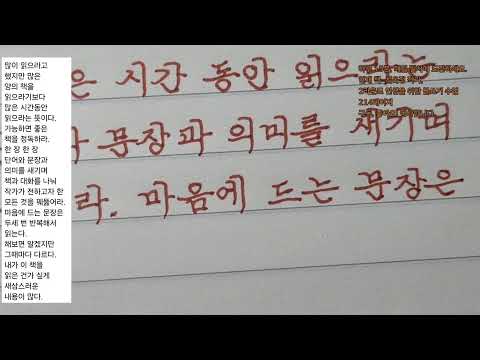 많이 읽으라고
했지만 많은
양의 책을
읽으라기보다
많은 시간동안
읽으라는 뜻이다.
가능하면 좋은
책을 정독하라.
한 장 한 장
단어와 문장과
의미를 새기며
책과 대화를 나눠
작가가 전하고자 한
모든 것을 꿰뚫어라.
마음에 드는 문장은
두세 번 반복해서
읽는다.
해보면 알겠지만
그때마다 다르다.
내가 이 책을
읽은 건가 싶게
새삼스러운
내용이 많다.
은 시간 동안 읽으라는
문장과 의미를 새기며
라. 마음에 드는 문장은
214페이지